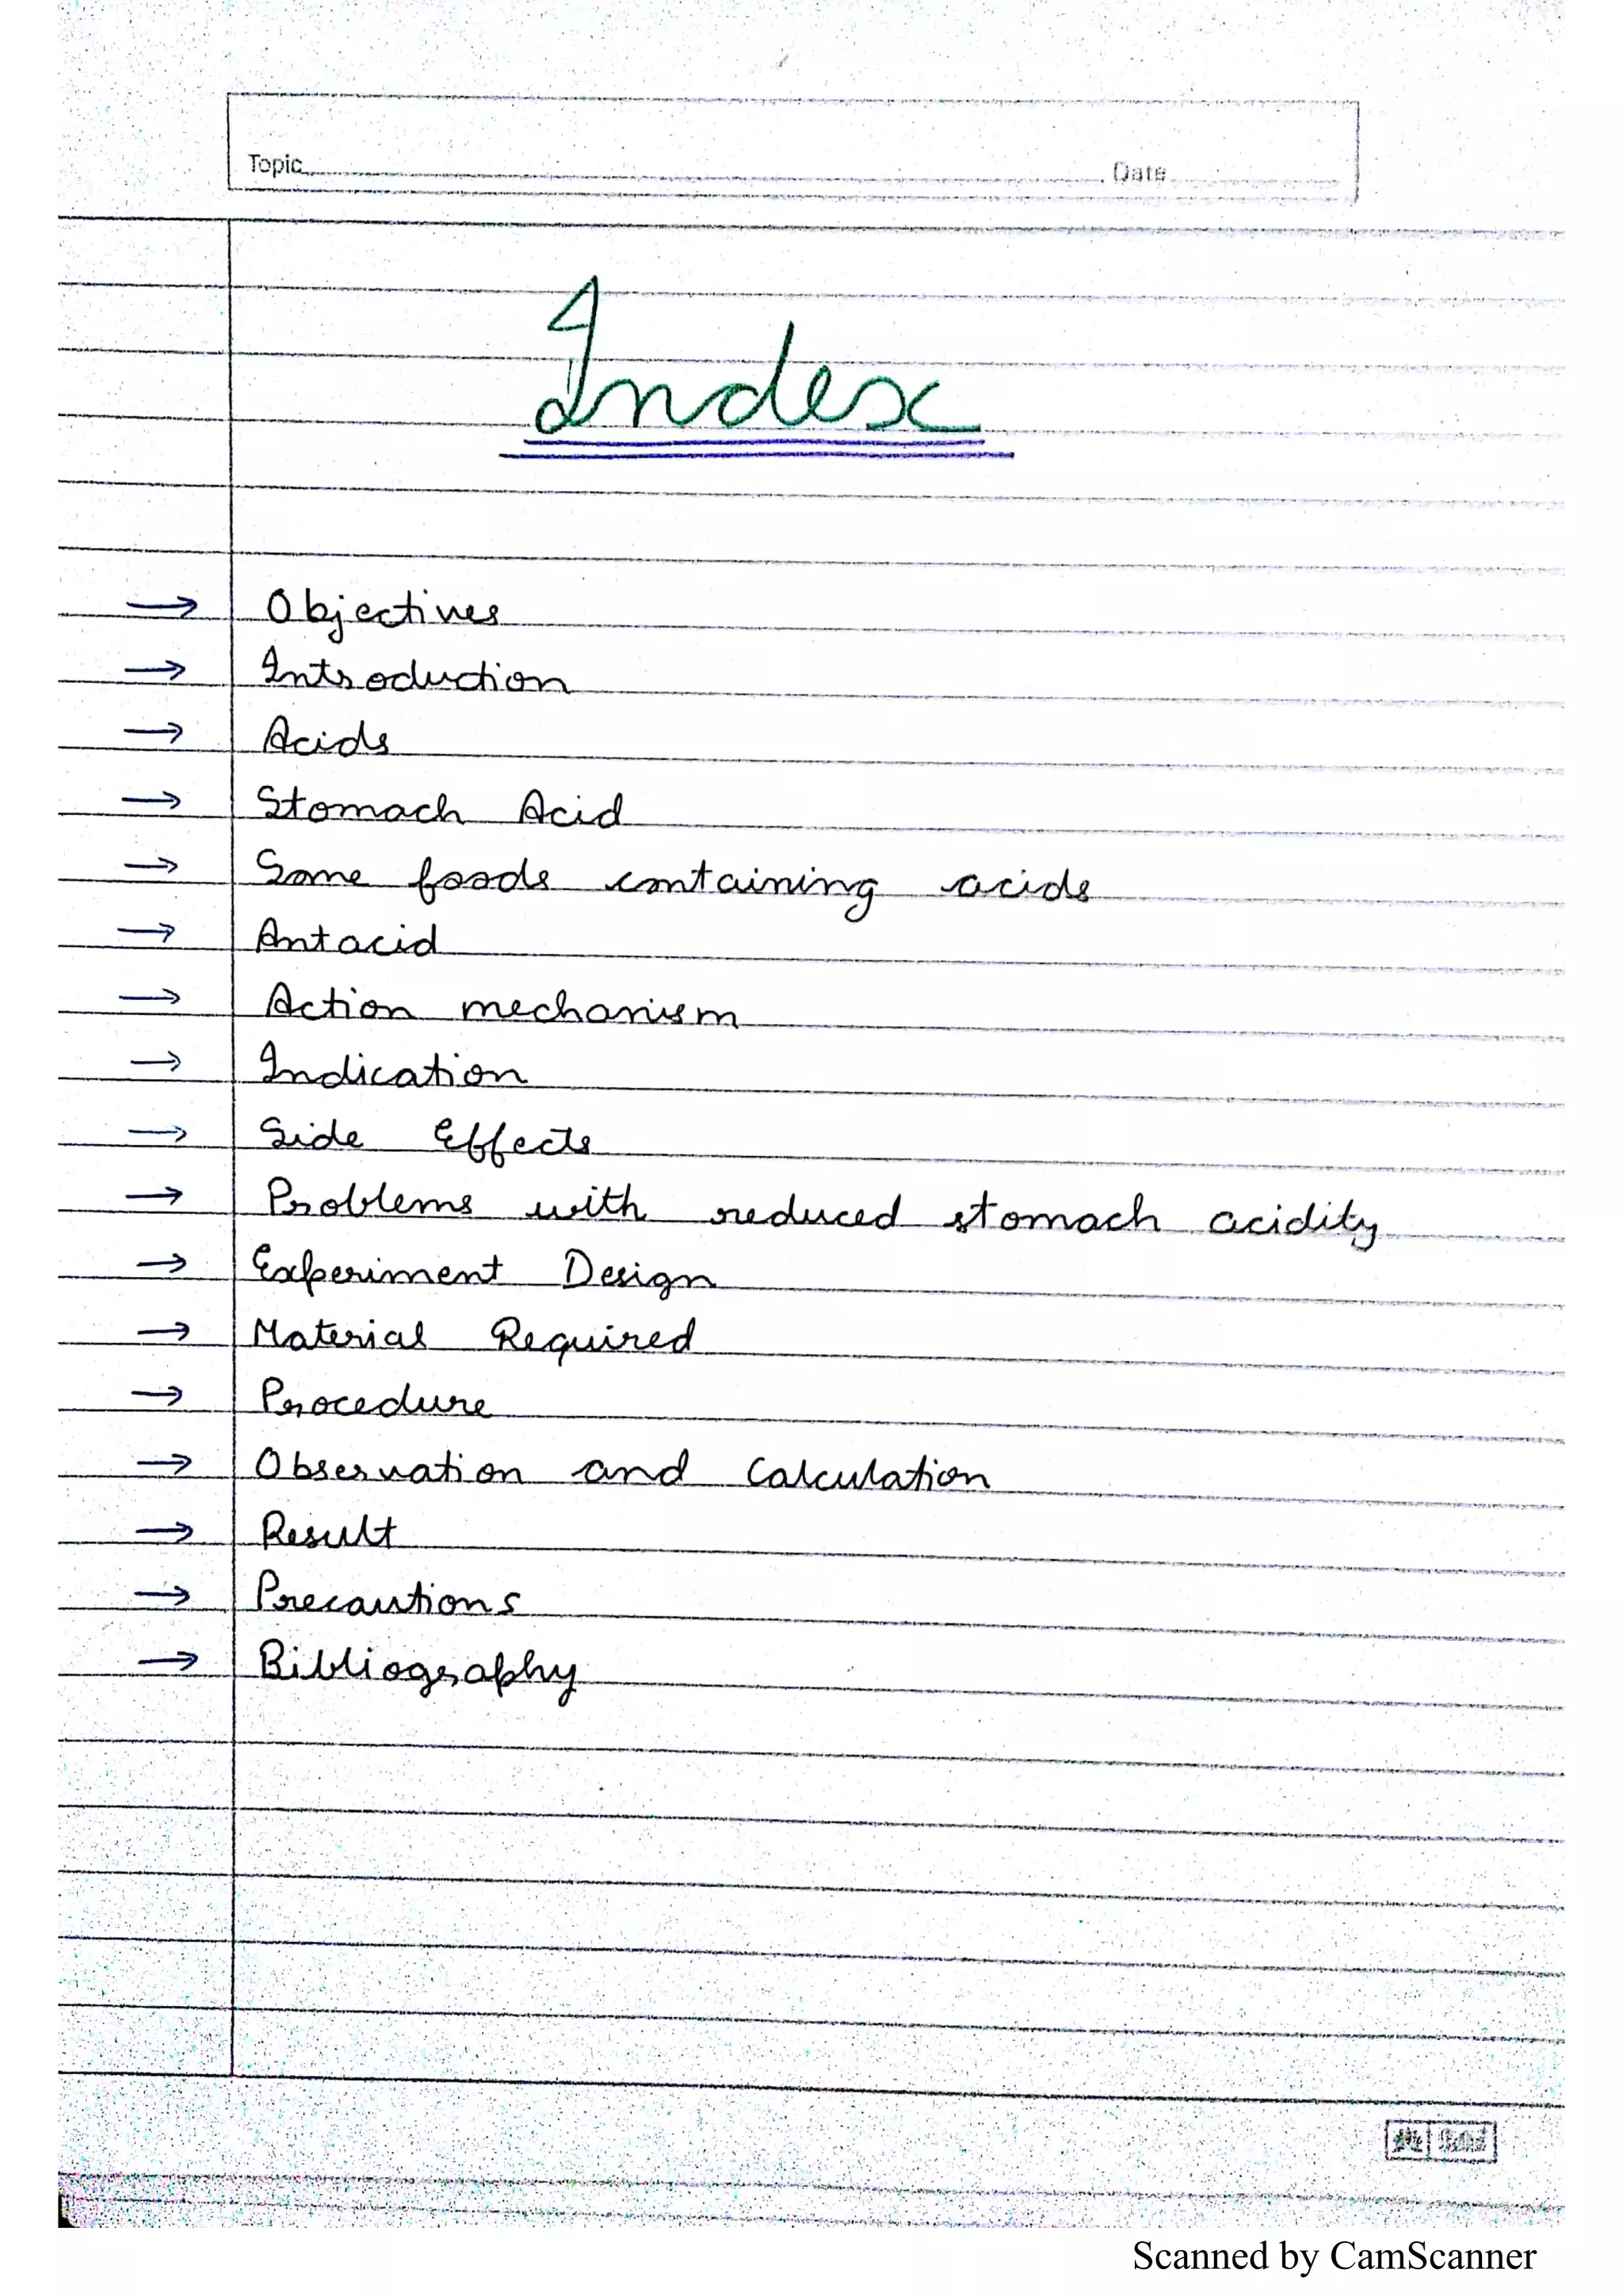 Topic Date
Index
→ Objectives
→ Introduction
→ Acids
→ Stomach Acid
→ Some foods containing acids
→ Antacid
→ Action mechanism
→ Indication
→ Side Effects
→ Problems with reduced stomach acidity
→ Experiment Design
→ Material Required
→ Procedure
→ Observation and Calculation
→ Result
→ Precautions
→ Bibliography
Scanned by CamScanner